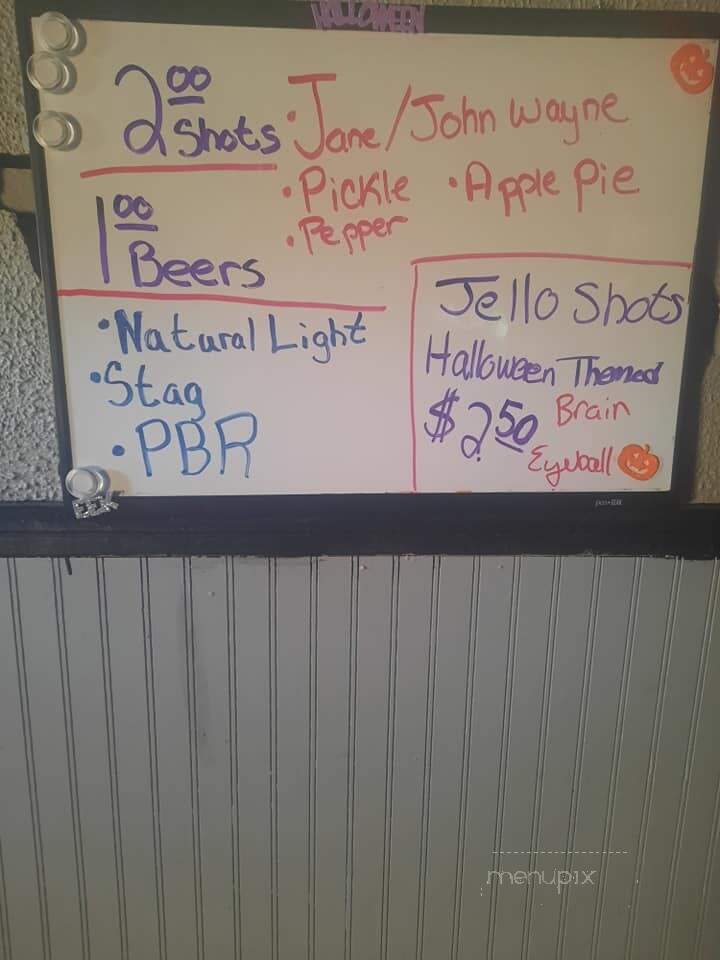 HALLOWEEN
2 00 Shots
• Jane/John Wayne
• Pickle • Apple Pie
• Pepper
1 00 Beers
• Natural Light
• Stag
• PBR
Jello Shots
Halloween Themed
$2.50 Brain
Eyeball
EEK
menupix